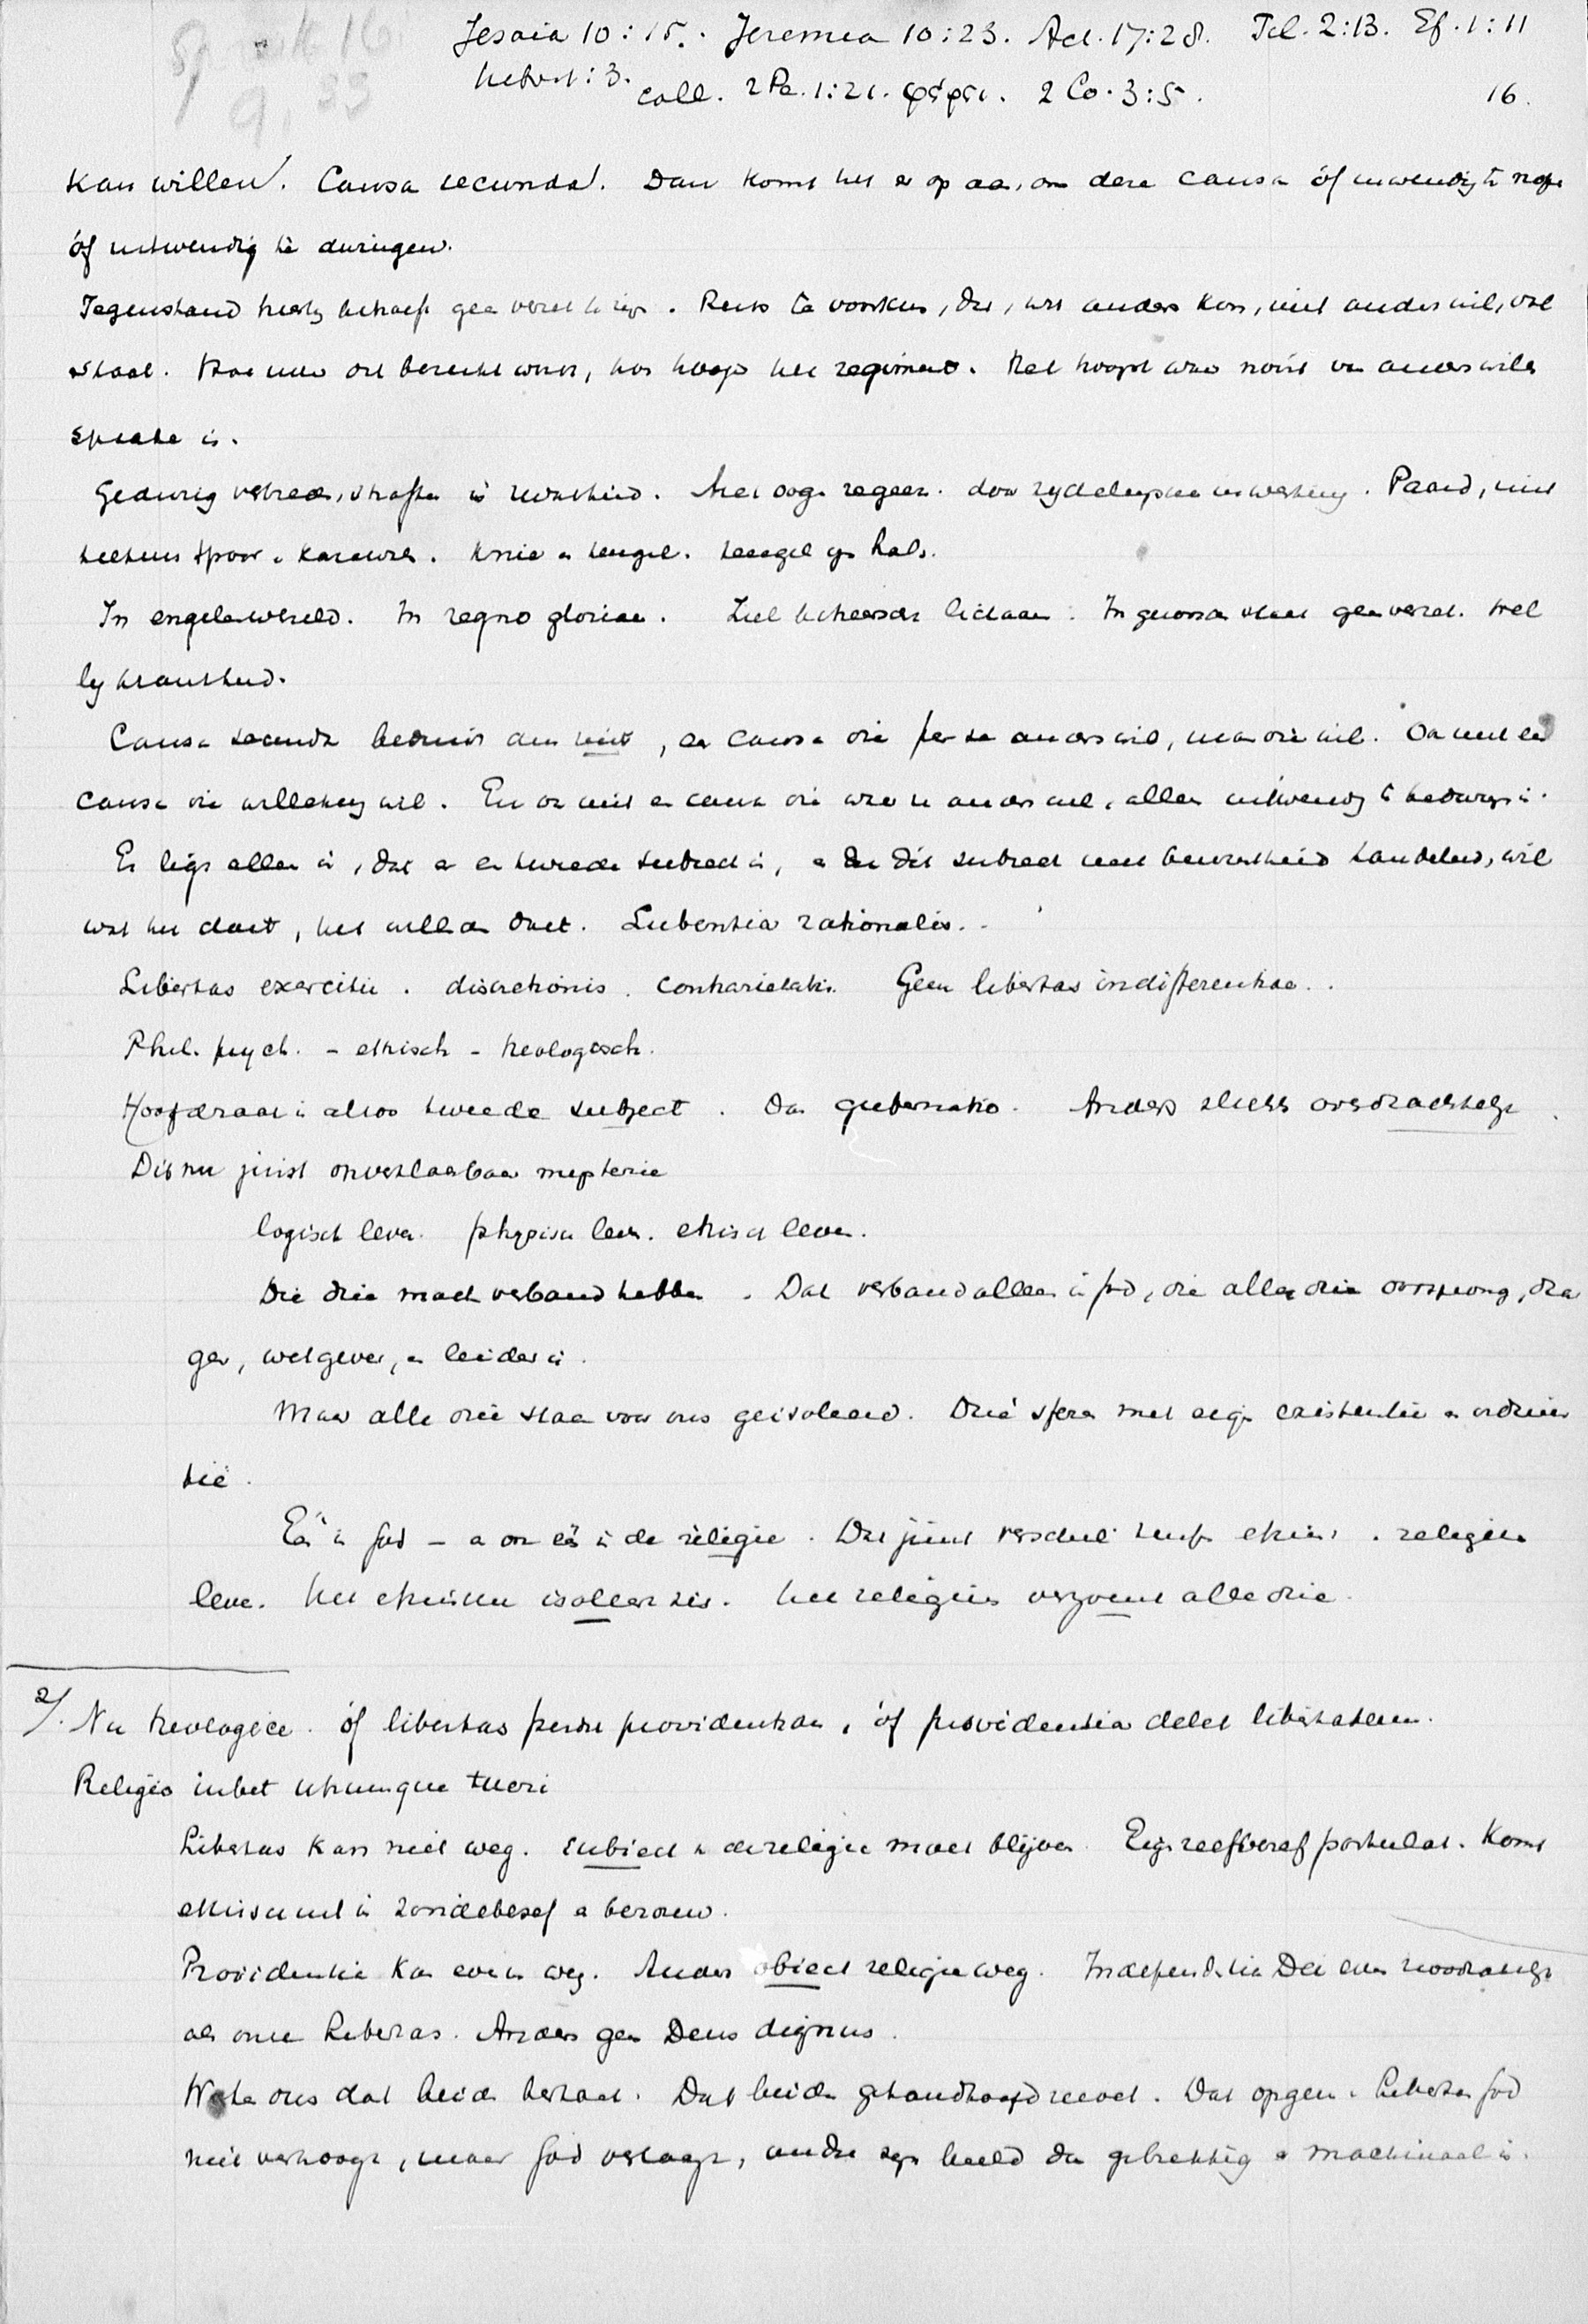 Spreuk 16
9, 33
Jesaia 10:15. Jeremia 10:23. Act. 17:28. Fil. 2:13. Ef. 1:11
Hebr. 1:3. coll. 2 Pe. 1:21. 2 Co. 3:5. 16.
kan willen. Causa secunda. Dan komt het er op aan, om deze causa óf inwendig te
óf uitwendig te dwingen.
Tegenstand hierbij behoeft geen verzet te zijn. Reeds te voorkomen, dat, wat anders kon, niet anders wil, vol
staat. Hoe meer dit bereikt wordt, hoe hooger het regiment. Het hoogst waar nooit van anders willen
sprake is.
Gedurig verbieden, straffen is zwakheid. Met oogen regeeren. door zijdelingsche inwerking. Paard, niet
telkens spoor en karwats. Knie en teugel. teugel op hals.
In engelenwereld. In regno gloriae. Ziel beheerscht lichaam. In gezonden staat geen verzet. Wel
bij krankheid.
Causa secunda beduidt dus niet, een causa die per se anders wil, maar die wil. Ook niet een
causa die willekeurig wil. En ook niet een causa die waar ze anders wil, alleen uitwendig te bedwingen is.
Er ligt alleen in, dat er een tweede subject is, en dat dit subject met bewustheid handelend, wil
wat het doet, het willen doet. Lubentia rationalis.
Libertas exercitii. discretionis. contrarietatis. Geen libertas indifferentiae.
Phil. psych. - ethisch - theologisch.
Hoofdzaak is alzoo tweede subject. Dan gubernatio. Anders slechts overdrachtelijk.
Dit nu juist onverklaarbaar mysterie
logisch leven. physisch leven. ethisch leven.
Die drie moeten verband hebben. Dat verband alleen in God, die aller drie oorsprong, dra
ger, wetgever, en leider is.
Maar alle drie staan voor ons geisoleerd. Drie sferen met eigen existentie en ordinan
tië.
Eén in God - en ook één in de religie. Dat juist verschil tusschen ethisch en religieus
leven. Het ethische isoleert zich. Het religieus verzoent alle drie.
2/. Nu theologice. óf libertas perdit providentiam, óf providentia delet libertatem.
Religio iubet utrumque tueri
Libertas kan niet weg. Subject in de religie moet blijven. Eigen zelfbesef postulaat. Komt
ethisch uit in zondebesef en berouw.
Providentie kan evenmin weg. Anders object religie weg. Independentia Dei even noodzakelijk
als onze libertas. Anders geen Deus dignus.
Weten ons dat beide bestaat. Dat beide gehandhaafd moet. Dat opgeven libertas God
niet verhoogt, maar God verlaagt, omdat zijn beeld dan gebrekkig en machinaal is.